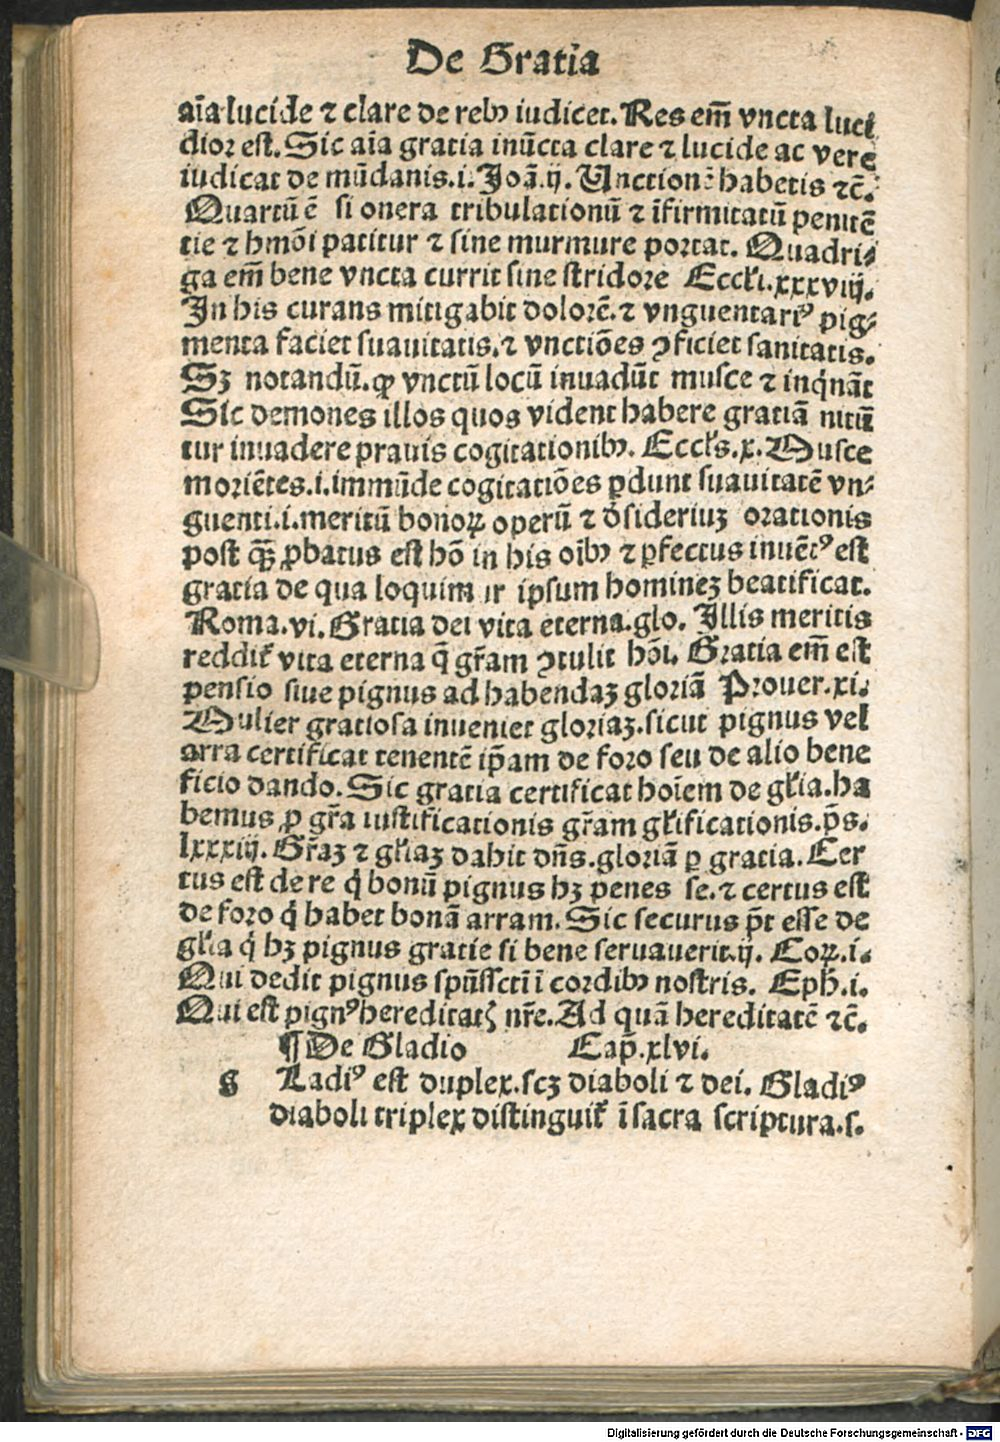 De Gratia
aĩa lucide ⁊ clare de rebꝰ iudicet. Res em̃ vncta luci
dior est. Sic aĩa gratia inũcta clare ⁊ lucide ac vere
iudicat de mũdanis. i. Joã. ij. Unctionẽ habetis ⁊c̃.
Quartũ ẽ si onera tribulationũ ⁊ ĩfirmitatũ penitẽ
tie ⁊ hmõi patitur ⁊ sine murmure portat. Quadri⸗
ga em̃ bene vncta currit sine stridore Eccłi. xxxviij.
In his curans mitigabit dolorẽ. ⁊ vnguentariꝰ pig⸗
menta faciet suauitatis. ⁊ vnctiões ꝯficiet sanitatis.
Sꝫ notandũ. ꝙ vnctũ locũ inuadũt musce ⁊ inq̇nãt
Sic demones illos quos vident habere gratiã nitũ
tur inuadere prauis cogitationibꝰ. Eccłs. x. Musce
moriẽtes. i. immũde cogitatiões ꝑdunt suauitatẽ vn⸗
guenti. i. meritũ bonoꝝ operũ ⁊ d̃sideriuꝫ orationis
post q̃ꝫ ꝓbatus est hõ in his oĩbꝰ ⁊ ꝑfectus inuẽtꝰ est
gratia de qua loquimur ipsum homineꝫ beatificat.
Roma. vi. Gratia dei vita eterna. glo. Illis meritis
reddit᷑ vita eterna q̃ gr̃am ꝯtulit hõi. Gratia em̃ est
pensio siue pignus ad habendaꝫ gloriã Prouer. xi.
Mulier gratiosa inueniet gloriaꝫ. sicut pignus vel
arra certificat tenentẽ ip̃am de foro seu de alio bene
ficio dando. Sic gratia certificat hoĩem de głia. ha
bemus ꝑ gr̃a iustificationis gr̃am głificationis. p̃s.
lxxxiij. Gr̃aꝫ ⁊ głiaꝫ dabit dñs. gloriã ꝑ gratia. Cer
tus est de re q̇ bonũ pignus hꝫ penes se. ⁊ certus est
de foro q̇ habet bonã arram. Sic securus p̃t esse de
głia q̇ hꝫ pignus gratie si bene seruauerit. ij. Coꝝ. i.
Qui dedit pignus spũssc̃ti ĩ cordibꝰ nostris. Eph̃. i.
Qui est pignꝰ hereditatꝭ nr̃e. Ad quã hereditatẽ ⁊c̃.
¶ De Gladio Cap̃. xlvi.
g Ladiꝰ est duplex. scꝫ diaboli ⁊ dei. Gladiꝰ
diaboli triplex distinguit᷑ ĩ sacra scriptura. s.
Digitalisierung gefördert durch die Deutsche Forschungsgemeinschaft - DFG